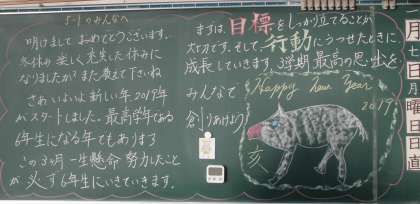 5-1のみんなへ
明けまして おめでとうございます。
冬休み 楽しく充実した休みに
なりましたか?また教えて下さいね
さあ いよいよ新しい年 2019年
がスタートしました。最高学年である
6年生になる年でもあります
この3ヶ月 一生懸命 努力したこと
が 必ず6年生にいきていきます。
まずは、目標をしっかり立てることが
大切です。そして、行動にうつせたときに
成長していきます。3学期 最高の思い出を
みんなで
創りあげよう
Happy New Year
2019
亥
月
七
日
月
曜
日
日
直